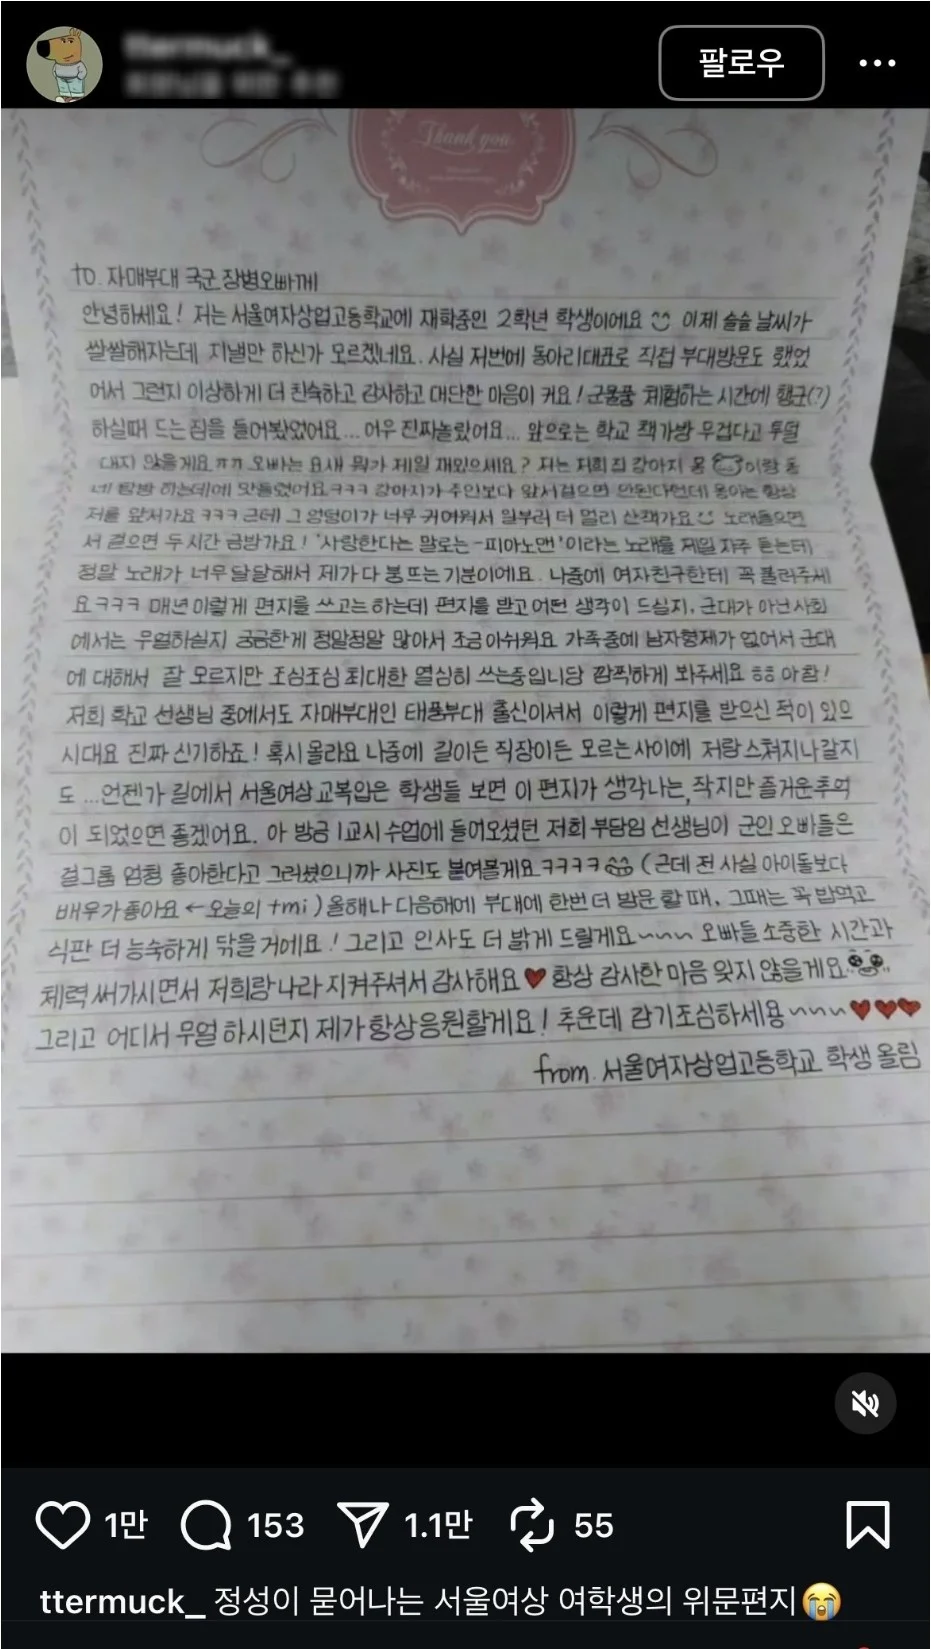 팔로우
Thank you
to. 자매부대 국군장병오빠께
안녕하세요! 저는 서울여자상업고등학교에 재학중인 2학년 학생이에요 이제 슬슬 날씨가
쌀쌀해자는데 지낼만 하신가 모르겠네요. 사실 저번에 동아리대표로 직접 부대방문도 했었
어서 그런지 이상하게 더 친숙하고 감사하고 대단한 마음이 커요! 군용품 체험하는 시간에 행군(?)
하실때 드는 짐을 들어봤었어요... 어우 진짜놀랐어요... 앞으로는 학교 책가방 무겁다고 투덜
대지 않을게요 ㅠㅠ 오빠는 요새 뭐가 제일 재밌으세요? 저는 저희집 강아지 몽 이랑 동
네 탐방 하는데에 맛들렸어요 ㅋㅋㅋ 강아지가 주인보다 앞서걸으면 안된다던데 몽이는 항상
저를 앞서가요 ㅋㅋㅋ 근데 그 엉덩이가 너무 귀여워서 일부러 더 멀리 산책가요 노래들으면
서 걸으면 두시간 금방가요! '사랑한다는 말로는-피아노맨' 이라는 노래를 제일 자주 듣는데
정말 노래가 너무 달달해서 제가 다 붕 뜨는 기분이에요. 나중에 여자친구한테 꼭 불러주세
요 ㅋㅋㅋ 매년 이렇게 편지를 쓰고는 하는데 편지를 받고 어떤 생각이 드실지, 군대가 아닌 사회
에서는 무얼하실지 궁금한게 정말정말 많아서 조금 아쉬워요 가족 중에 남자형제가 없어서 군대
에 대해서 잘 모르지만 조심조심 최대한 열심히 쓰는중입니당 깜찍하게 봐주세요 ㅎㅎ 아참!
저희 학교 선생님 중에서도 자매부대인 태풍부대 출신이셔서 이렇게 편지를 받으신 적이 있으
시대요 진짜 신기하죠! 혹시 몰라요 나중에 길이든 직장이든 모르는사이에 저랑 스쳐지나갈지
도 ...언젠가 길에서 서울여상 교복입은 학생들 보면 이 편지가 생각나는, 작지만 즐거운 추억
이 되었으면 좋겠어요. 아 방금 1교시 수업에 들어오셨던 저희 부담임 선생님이 군인 오빠들은
걸그룹 엄청 좋아한다고 그러셨으니까 사진도 붙여볼게요 ㅋㅋㅋㅋ (근데 전 사실 아이돌보다
배우가 좋아요 ← 오늘의 tmi) 올해나 다음해에 부대에 한번 더 방문 할 때, 그때는 꼭 밥먹고
식판 더 능숙하게 닦을 거에요! 그리고 인사도 더 밝게 드릴게요~~~ 오빠들 소중한 시간과
체력 써가시면서 저희랑 나라 지켜주셔서 감사해요♥ 항상 감사한 마음 잊지 않을게요
그리고 어디서 무얼 하시던지 제가 항상 응원할게요! 추운데 감기조심하세용~~~♥♥♥
from. 서울여자상업고등학교 학생 올림
1만 153 1.1만 55
ttermuck_ 정성이 묻어나는 서울여상 여학생의 위문편지😭